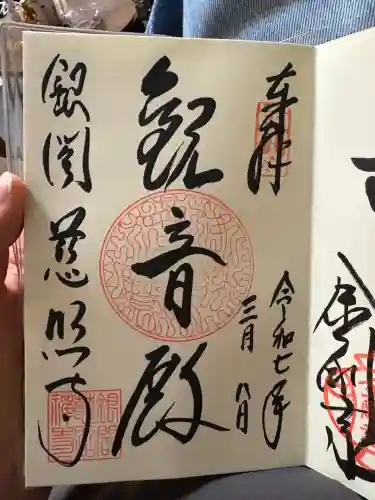 奉拝
令和七年
三月八日
観音殿
銀閣 慈照寺